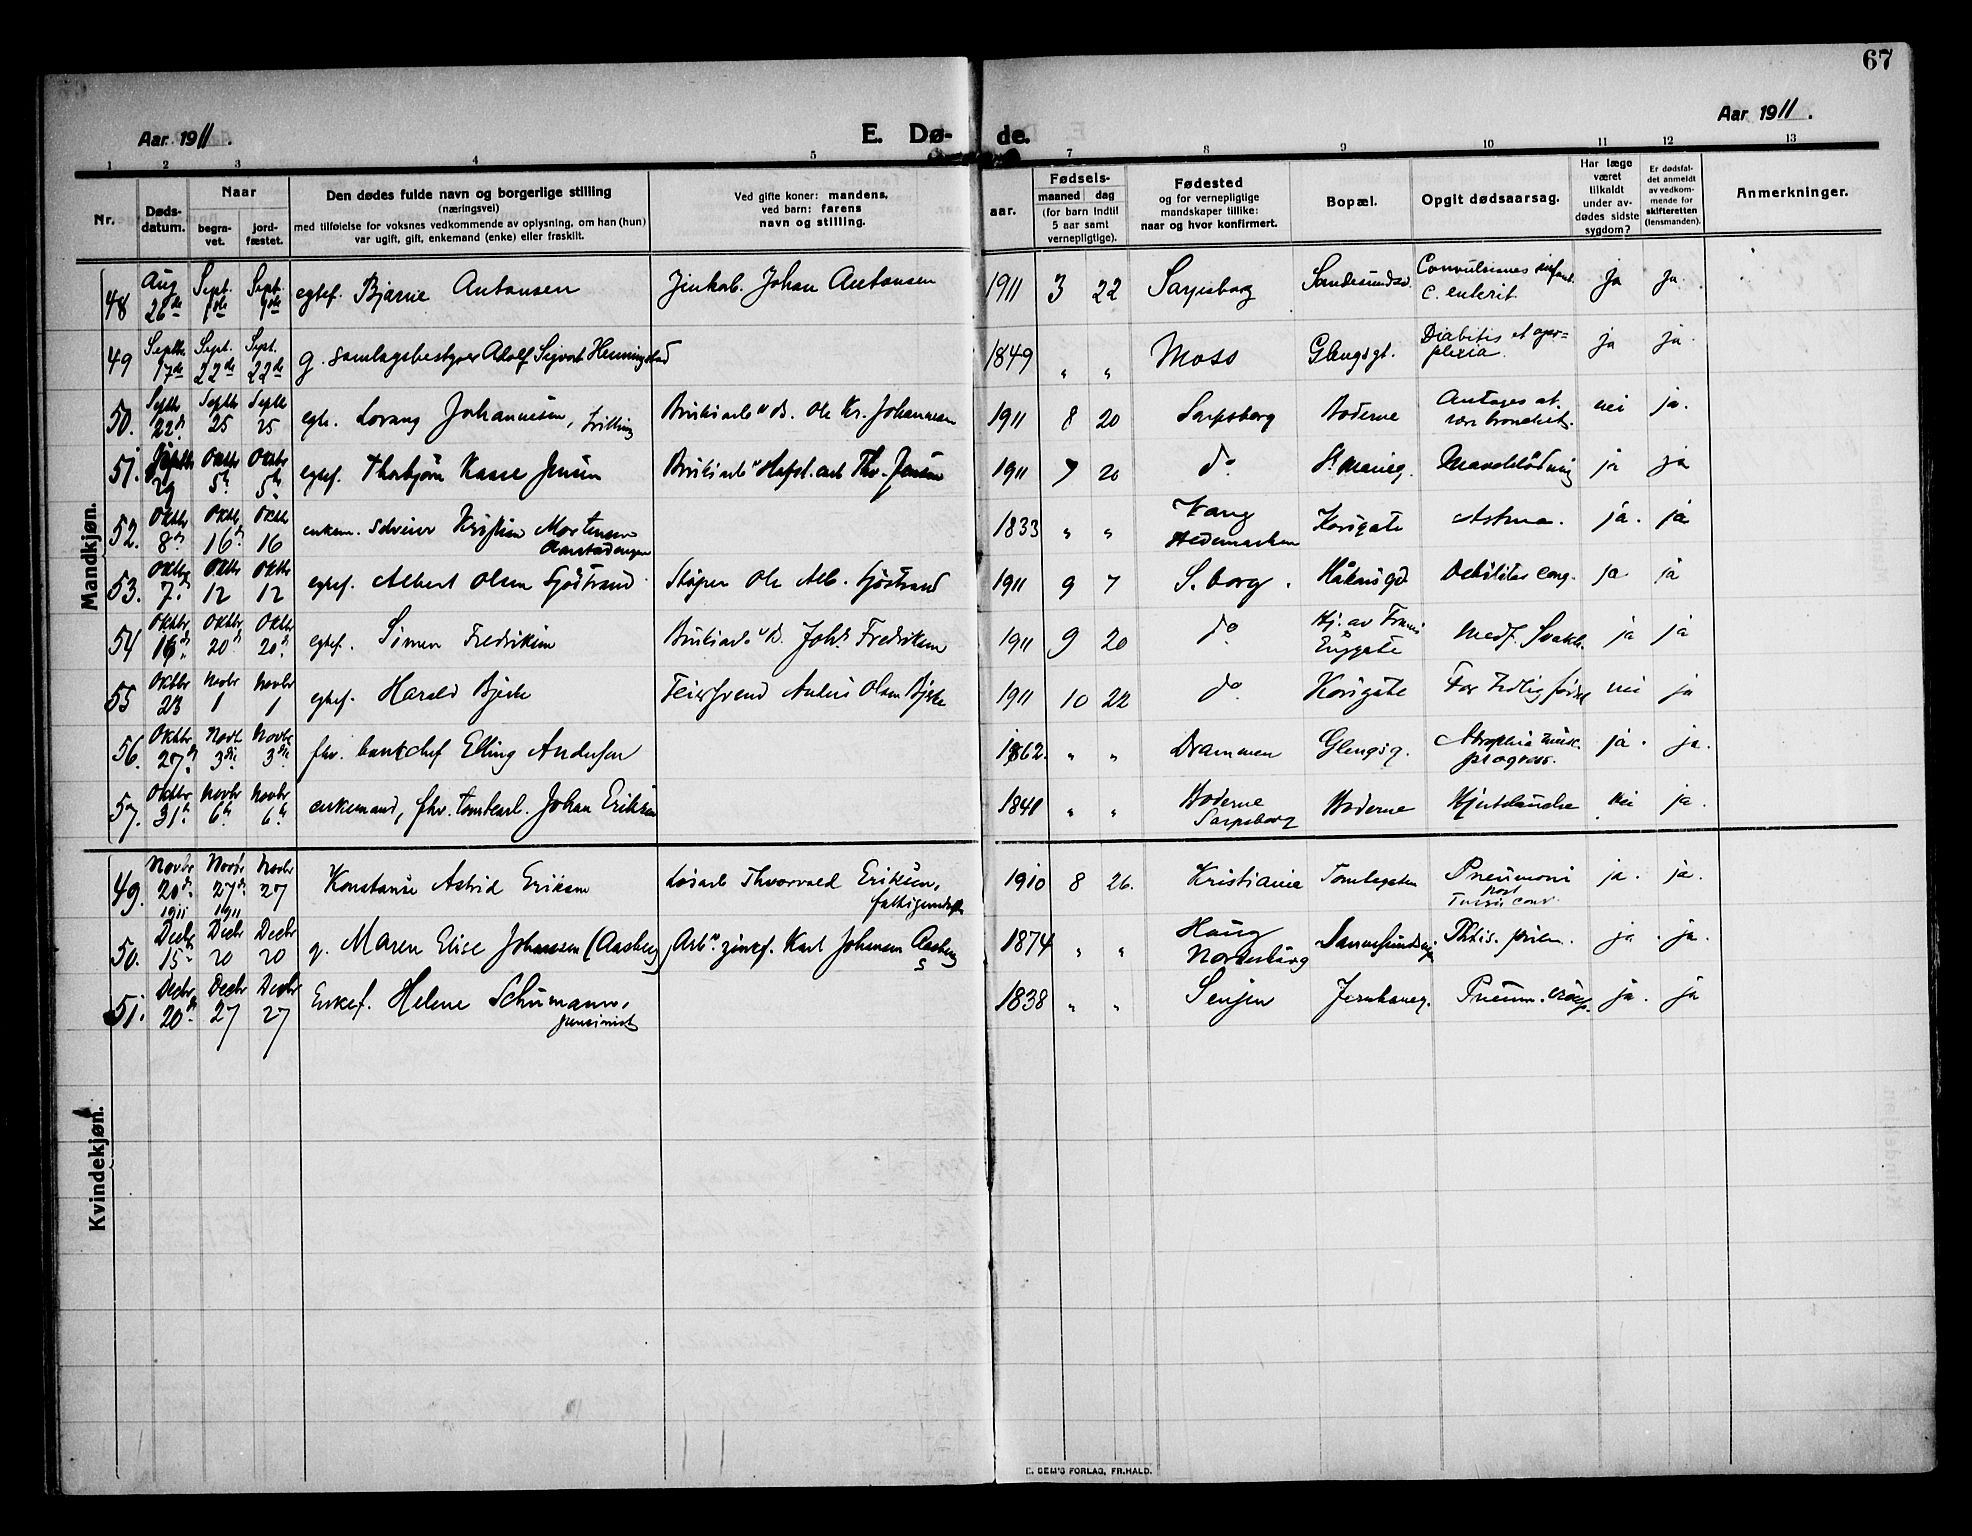 67
Aar 1911.
E. Dø- de.
Aar 1911.
1 2 3 4 5 7 8 9 10 11 12 13
Nr.
Døds-
datum.
Naar
begra-
vet.
jord-
fæstet.
Den dødes fulde navn og borgerlige stilling
(næringsvei)
med tilføielse for voksnes vedkommende av oplysning, om han (hun)
var ugift, gift, enkemand (enke) eller fraskilt.
Ved gifte koner: mandens,
ved barn: farens
navn og stilling.
Fødsels-
aar.
maaned dag
(for barn indtil
5 aar samt
vernepligtige).
Fødested
og for vernepligtige
mandskaper tillike:
naar og hvor konfirmert.
Bopæl.
Opgit dødsaarsag.
Har læge
været
tilkaldt
under av-
dødes sidste
sygdom?
Er dødsfal-
det anmeldt
av vedkom-
mende for
skifteretten
(lensmanden).
Anmerkninger.
Mandkjøn.
48 Aug 26de Sept. 1ste Sept. 1ste egtef. Bjarne Antonsen Zinkarb. Johan Antonsen 1911 3 22 Sarpsborg Sandesundsv. Convulsiones infant. ja ja
c. enterit.
49 Septbr 17de Sept. 22de Sept. 22de g. samlagsbestyrer Adolf Sigvart Henningstad 1849 " " Moss Glengsgt. Diabitis et apo- ja ja
plexia.
50. Septbr 22d. Septbr 25 Septbr 25 egte. Lorang Johannesen, trilling Bruksarb v B. Ole Kr. Johannesen 1911 8 20 Sarpsborg Boderne Antages at nei ja.
være bronchit.
51. Septbr 29 Oktbr 5te Oktbr 5te egtef. Thorbjørn Kaare Jensen Bruksarb v Hafsl. Thv. Jensen 1911 7 20 do St. Marieg. Maveblødning ja ja
52. Oktbr 8de Oktbr 16de Oktbr 16 enkem. Kristian Mortensen 1833 " " Vang Korsgate Astma. ja. ja
Hedemarken
53. Oktbr 7de Oktbr 12 Oktbr 12 egtef. Albert Olsen Sjöstrand Støper Ole Alb. Sjöstrand 1911 9 7 S.borg. Håkonsgt Debilitas cong. ja ja
54 Oktbr 16de Oktbr 20de Oktbr 20de egtef. Simen Fredriksen Bruksarb v B. Johs. Fredriksen 1911 9 20 do Hj. av Frns medf. Svakh. ja ja
& Enggate
55 Oktbr 23 Novbr 1 Novbr 1 egtef. Harald Bjerke Feiersvend Anlius Olsen Bjerke 1911 10 22 do Korsgate For tidlig født nei ja
56. Oktbr 27de Novbr 3die Novbr 3die fhv. bankchef Elling Andersen 1862. " " Drammen Glengsg. Atrophia musc. ja. ja.
progress.
57. Oktbr 31te Novbr 6te Novbr 6te enkemand, fhv. tomtearb. Johan Eriksen 1841 " " Boderne Boderne Hjertelamelse nei ja.
Sarpsborg
Kvindekjøn.
49. Novbr 20de 1911 Novbr 27de 1911 Novbr 27 Konstanse Astrid Eriksen Løsarb Thorvald Eriksen, 1910 8 26. Kristiania Tomtegaten Pneumoni ja. ja.
fattigunderst. post
Tussis conv.
50. Decbr 15de Decbr 20 Decbr 20 g. Maren Elise Johansen (Aasberg) Arb. v. zinkf. Karl Johansen Aasberg 1874 " " Haug Sannesundsvn. Phtis. pulm. ja. ja.
Norderhov
51. Decbr 20de Decbr 27 Decbr 27 Enkef. Helene Schumann, 1838 " " Senjen Jernbaneg. Pneum. croup. ja. ja
pensionist
E. SEM'S FORLAG, FR.HALD.